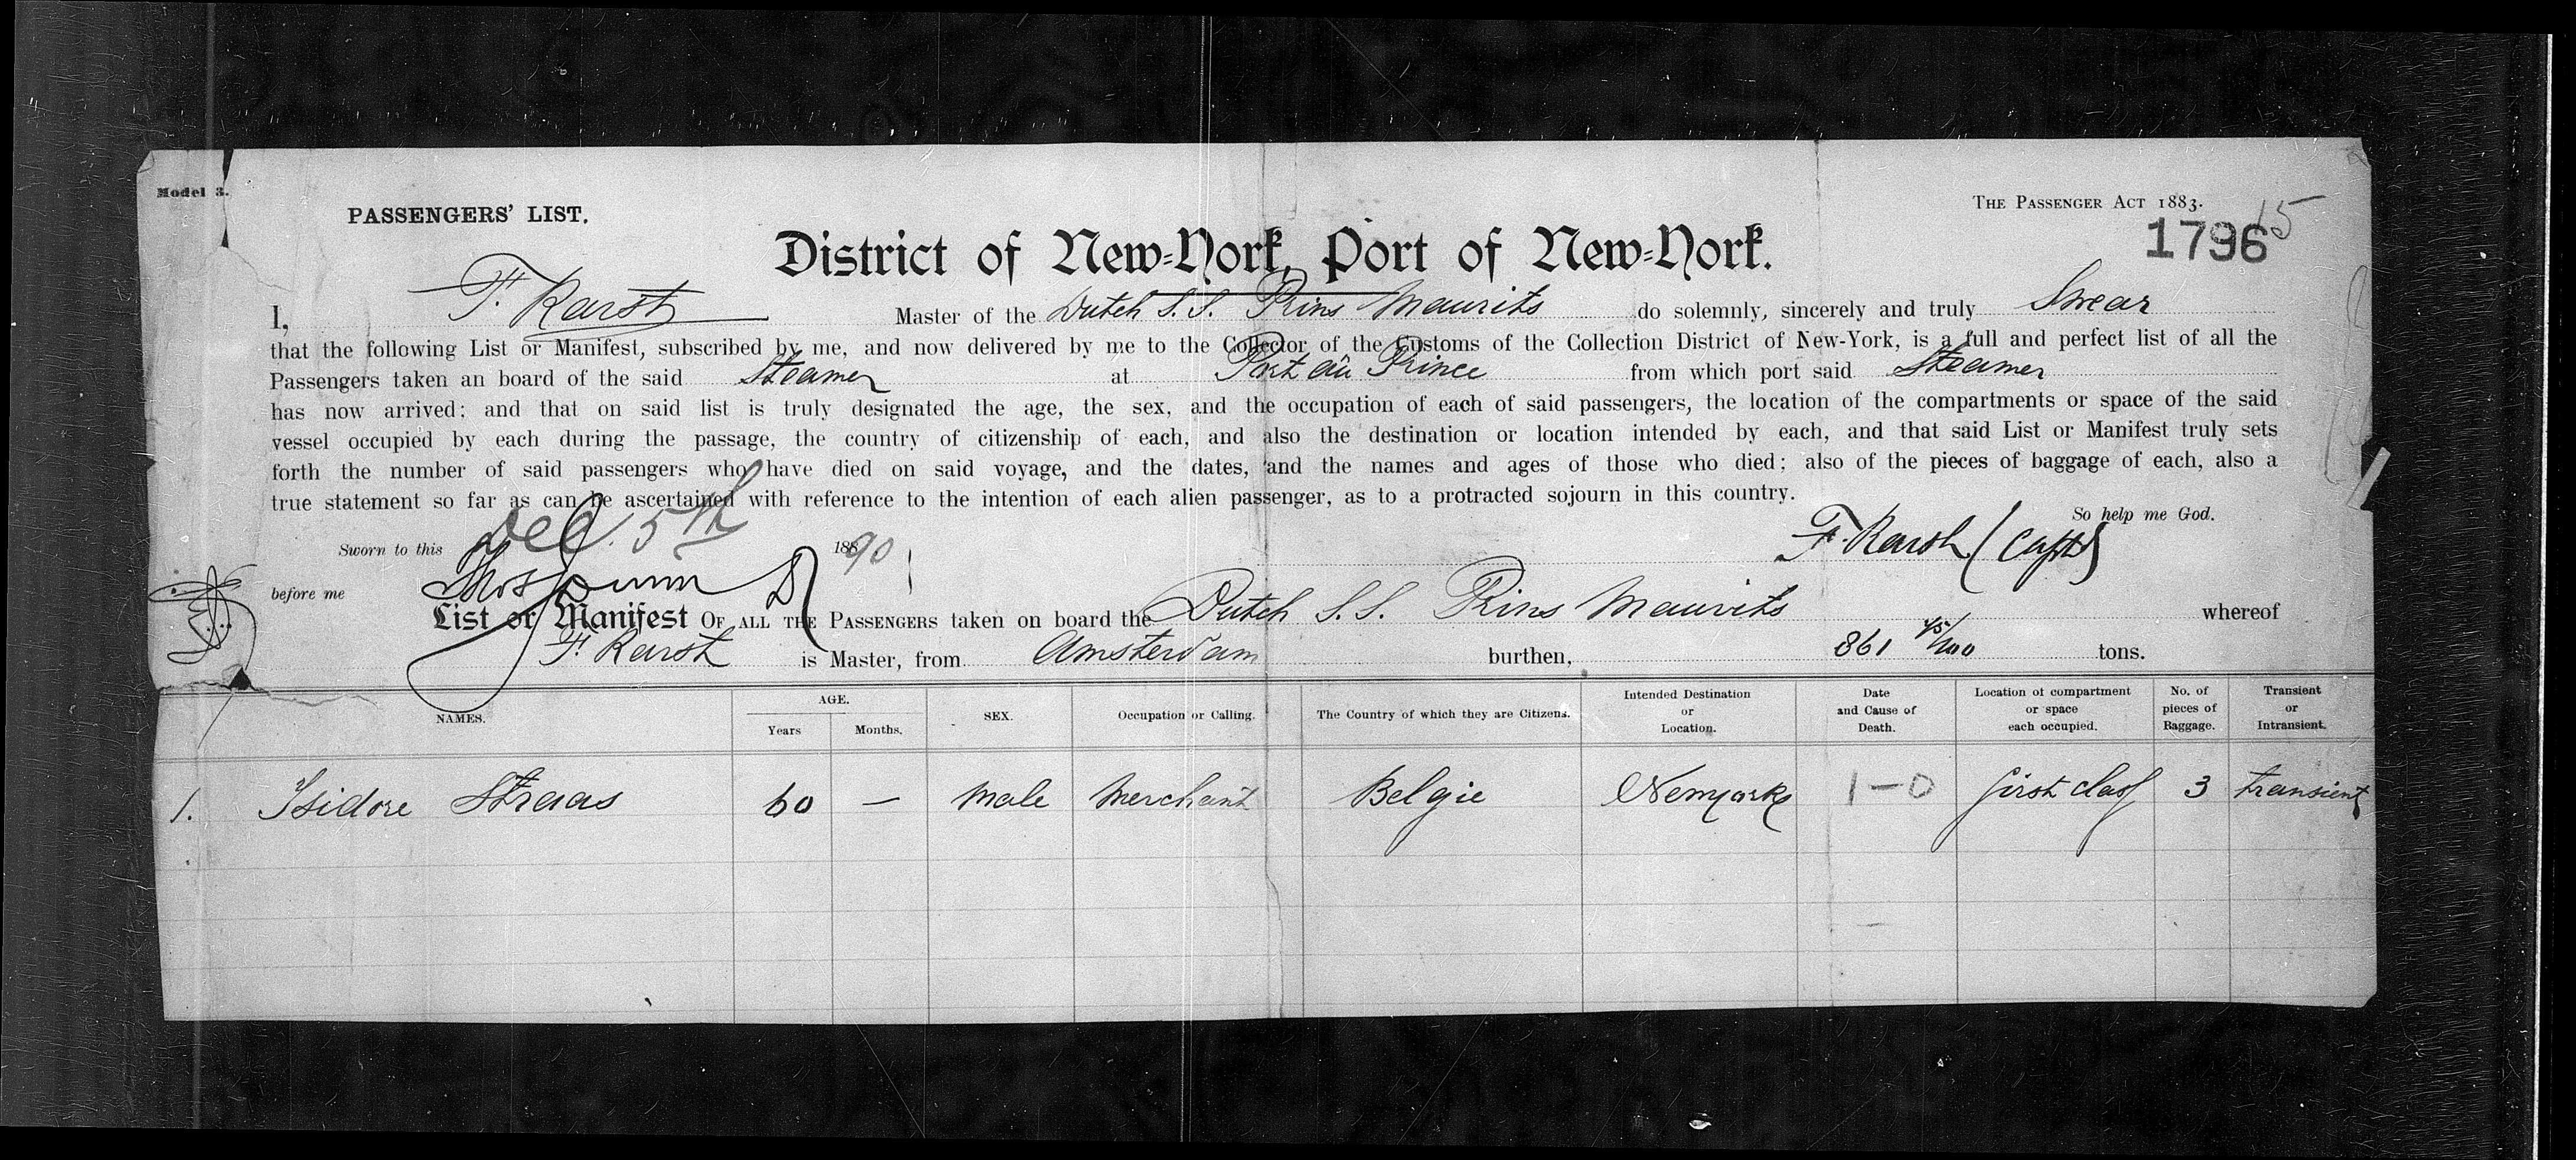 Model 3.
PASSENGERS' LIST.
THE PASSENGER ACT 1883.
15
1796
District of New-York, Port of New-York.
I, F. Karst Master of the Dutch S.S. Prins Maurits do solemnly, sincerely and truly Swear
that the following List or Manifest, subscribed by me, and now delivered by me to the Collector of the Customs of the Collection District of New-York, is a full and perfect list of all the
Passengers taken an board of the said Steamer at Port au Prince from which port said Steamer
has now arrived; and that on said list is truly designated the age, the sex, and the occupation of each of said passengers, the location of the compartments or space of the said
vessel occupied by each during the passage, the country of citizenship of each, and also the destination or location intended by each, and that said List or Manifest truly sets
forth the number of said passengers who have died on said voyage, and the dates, and the names and ages of those who died; also of the pieces of baggage of each, also a
true statement so far as can be ascertained with reference to the intention of each alien passenger, as to a protracted sojourn in this country.
So help me God.
Sworn to this Dec. 5th 1890 F. Karst (Capt)
before me
List or Manifest OF ALL THE PASSENGERS taken on board the Dutch S.S. Prins Maurits whereof
F. Karst is Master, from Amsterdam burthen, 861 45/100 tons.
NAMES. AGE. Years Months. SEX. Occupation or Calling. The Country of which they are Citizens. Intended Destination or Location. Date and Cause of Death. Location of compartment or space each occupied. No. of pieces of Baggage. Transient or Intransient.
1. Isidore Straas 60 — Male Merchant Belgie Newyork 1-0 first class 3 transient